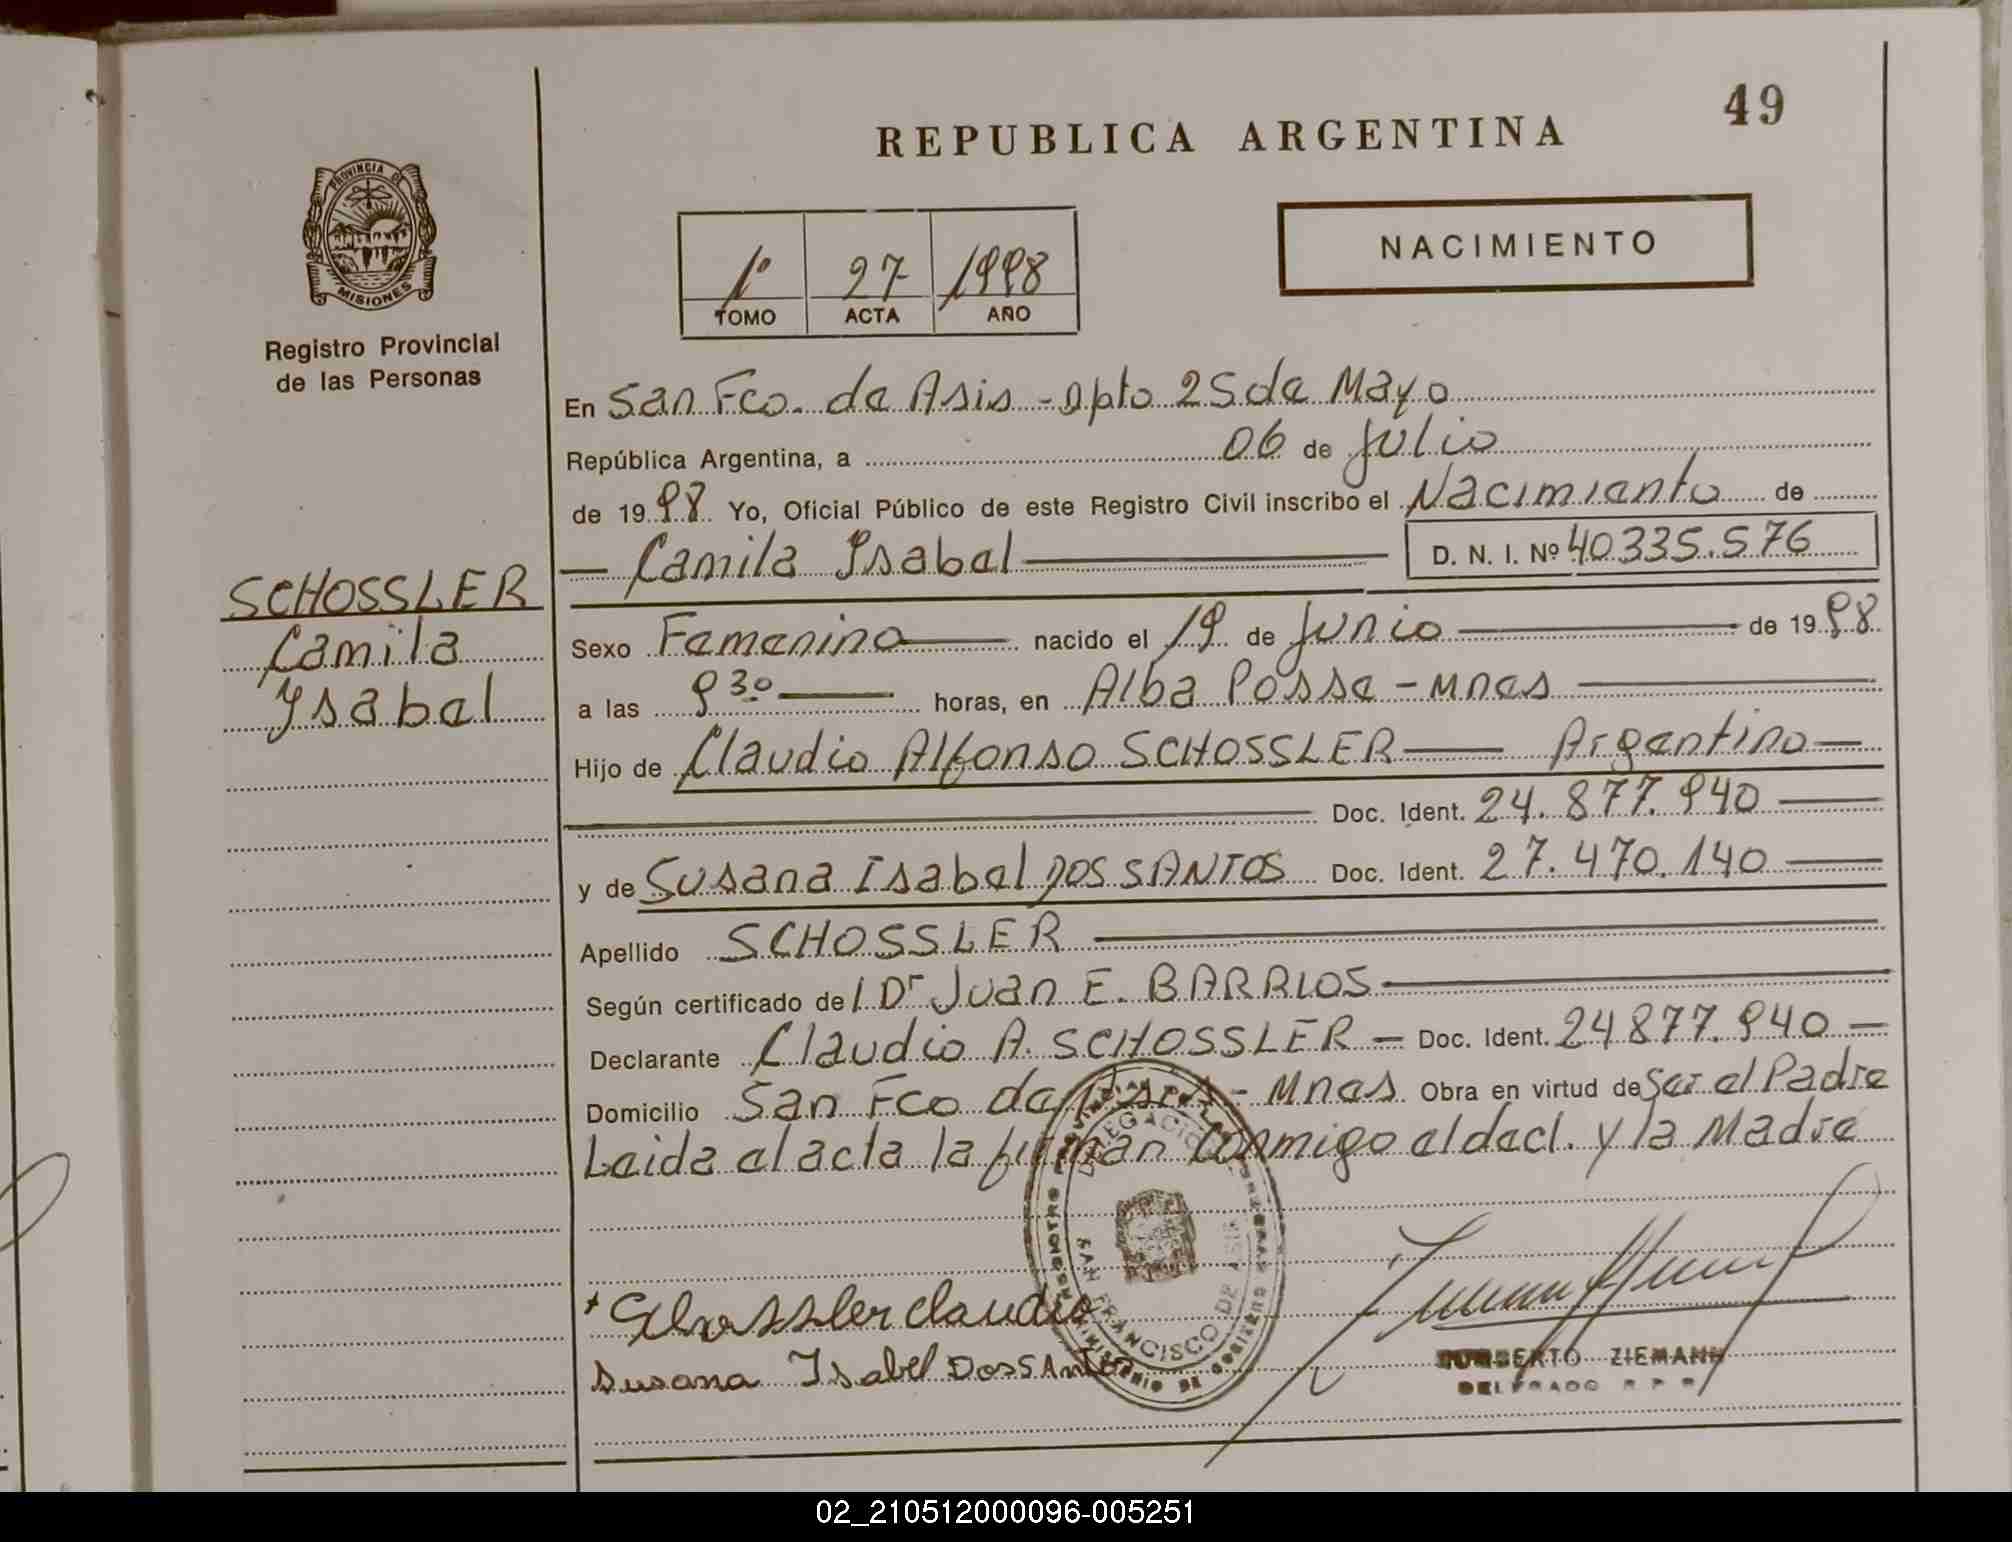 49
REPUBLICA ARGENTINA
NACIMIENTO
PROVINCIA DE
MISIONES
Registro Provincial
de las Personas
1º 27 1998
TOMO ACTA AÑO
En San Fco. de Asis - Dpto 25 de Mayo
República Argentina, a 06 de Julio
de 1998 Yo, Oficial Público de este Registro Civil inscribo el Nacimiento de
— Camila Ysabel — D. N. I. Nº 40335.576
SCHOSSLER
Camila
Ysabel
Sexo Femenino — nacido el 19 de Junio — de 1998
a las 9 30 — horas, en Alba Posse - Mnes —
Hijo de Claudio Alfonso SCHOSSLER — Argentino —
— Doc. Ident. 24.877.940 —
y de Susana Isabel DOS SANTOS Doc. Ident. 27.470.140 —
Apellido SCHOSSLER —
Según certificado del Dr Juan E. BARRIOS —
Declarante Claudio A. SCHOSSLER — Doc. Ident. 24877.940 —
Domicilio San Fco de Asis - Mnes Obra en virtud de Ser el Padre
Leida el acta la firman Conmigo el decl. y la Madre
DELEGACION
SAN FRANCISCO DE ASIS
MINISTERIO DE GOBIERNO
Schossler Claudio
Susana Isabel Dos Santos
HUMBERTO ZIEMANN
DELEGADO R P P
02_210512000096-005251